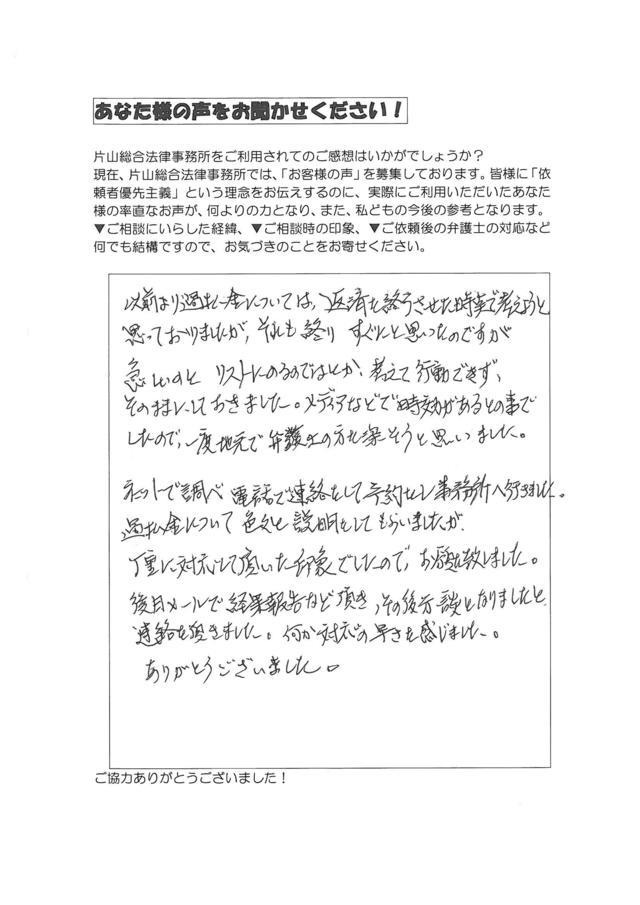 あなた様の声をお聞かせください！
片山総合法律事務所をご利用されてのご感想はいかがでしょうか？
現在、片山総合法律事務所では、「お客様の声」を募集しております。皆様に「依
頼者優先主義」という理念をお伝えするのに、実際にご利用いただいたあなた
様の率直なお声が、何よりの力となり、また、私どもの今後の参考となります。
▼ご相談にいらした経緯、▼ご相談時の印象、▼ご依頼後の弁護士の対応など
何でも結構ですので、お気づきのことをお寄せください。
以前より過払い金については、返済を終了させた時点で考えようと
思っておりましたが、それも終り すぐにと思ったのですが
リストにのるのではとか、考えて行動できず、
そのままにしておきました。メディアなどで時効があるとの事で
したので、一度地元で弁護士の方を探そうと思いました。
ネットで調べ 電話で連絡をして予約をし事務所へ行きました。
過払い金について 色々と説明をしてもらいましたが、
丁重に対応して頂いた印象でしたので、お願い致しました。
後日メールで経果報告など頂き、その後示談となりましたと
連絡を頂きました。何か対応の早さを感じました。
ありがとうございました。
ご協力ありがとうございました！